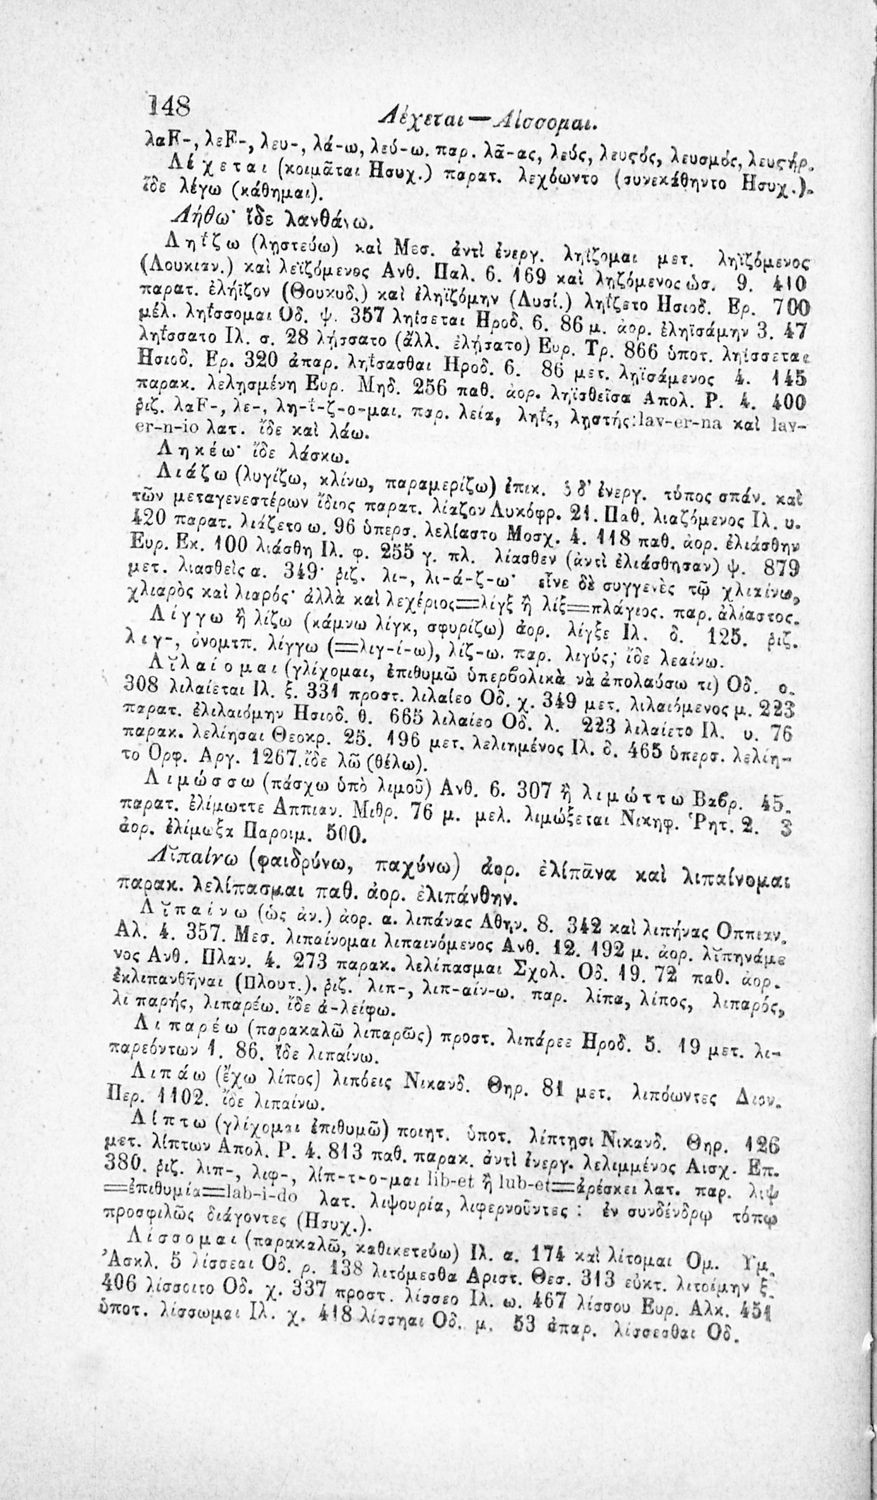 148
Λέχεται—Λίσσομαι.
λαϜ-, λεϜ-, λευ-, λά-ω, λεύ-ω. παρ. λᾶ-ας, λεύς, λευςός, λευσμός, λευςήρ.
Λέχεται (κοιμᾶται Ησυχ.) παρατ. λεχόωντο (συνεκάθηντο Ησυχ.).
ἴδε λέγω (κάθημαι).
Λήθω· ἴδε λανθάνω.
Ληΐζω (λῃστεύω) καὶ Μεσ. ἀντὶ ἐνεργ. ληΐζομαι μετ. ληϊζόμενος
(Λουκιαν.) καὶ λεϊζόμενος Ανθ. Παλ. 6. 169 καὶ ληζόμενος ὡσ. 9. 410
παρατ. ἐλήϊζον (Θουκυδ.) καὶ ἐληϊζόμην (Λυσί.) ληΐζετο Ησιοδ. Ερ. 700
μέλ. ληΐσσομαι Οδ. ψ. 357 ληίσεται Ηροδ. 6. 86 μ. ἀορ. ἐληϊσάμην 3. 47
ληΐσσατο Ιλ. σ. 28 λήσσατο (ἄλλ. ἐλήσατο) Ευρ. Τρ. 866 ὑποτ. ληίσσεται
Ησιοδ. Ερ. 320 ἀπαρ. ληΐσασθαι Ηροδ. 6. 86 μετ. ληϊσάμενος 4. 145
παρακ. λελησμένη Ευρ. Μηδ. 256 παθ. ἀορ. ληϊσθεῖσα Απολ. Ρ. 4. 400
ῥιζ. λαϜ-, λε-, λη-ΐ-ζ-ο-μαι. παρ. λεία, ληΐς, λῃστής: lav-er-na καὶ lav-
er-n-io λατ. ἴδε καὶ λάω.
Ληκέω· ἴδε λάσκω.
Λιάζω (λυγίζω, κλίνω, παραμερίζω) ἐπικ. ὁ δ' ἐνεργ. τύπος σπάν. καὶ
τῶν μεταγενεστέρων ἴδιος παρατ. λίαζον Λυκόφρ. 21. Παθ. λιαζόμενος Ιλ. υ.
420 παρατ. λιάζετο ω. 96 ὑπερσ. λελίαστο Μοσχ. 4. 118 παθ. ἀορ. ἐλιάσθην
Ευρ. Εκ. 100 λιάσθη Ιλ. φ. 255 γ. πλ. λίασθεν (ἀντὶ ἐλιάσθησαν) ψ. 879
μετ. λιασθεὶς α. 349· ῥιζ. λι-, λι-ά-ζ-ω· εἶνε δὲ συγγενὲς τῷ χλιαίνω,
χλιαρὸς καὶ λιαρός· ἀλλὰ καὶ λεχέριος=λίγξ ἢ λίξ=πλάγιος. παρ. ἀλίαστος.
Λίγγω ἢ λίζω (κάμνω λίγκ, σφυρίζω) ἀορ. λίγξε Ιλ. δ. 125. ῥιζ.
λιγ-, ὀνομτπ. λίγγω (=λιγ-ί-ω), λίζ-ω. παρ. λιγύς; ἴδε λεαίνω.
Λῑλαίομαι (γλίχομαι, ἐπιθυμῶ ὑπερβολικὰ νὰ ἀπολαύσω τι) Οδ. ο.
308 λιλαίεται Ιλ. ξ. 331 προστ. λιλαίεο Οδ. χ. 349 μετ. λιλαιόμενος μ. 223
παρατ. ἐλιλαιόμην Ησιοδ. θ. 665 λιλαίεο Οδ. λ. 223 λιλαίετο Ιλ. υ. 76
παρακ. λελίησαι Θεοκρ. 25. 196 μετ. λελιημένος Ιλ. δ. 465 ὑπερσ. λελίη-
το Ορφ. Αργ. 1267. ἴδε λῶ (θέλω).
Λιμώσσω (πάσχω ὑπὸ λιμοῦ) Ανθ. 6. 307 ἢ λιμώττω Βαβρ. 45.
παρατ. ἐλίμωττε Αππιαν. Μιθρ. 76 μ. μελ. λιμώξεται Νικηφ. Ῥητ. 2. 3
ἀορ. ἐλίμωξα Παροιμ. 500.
Λῐπαίνω (φαιδρύνω, παχύνω) ἀορ. ἐλίπᾶνα καὶ λιπαίνομαι
παρακ. λελίπασμαι παθ. ἀορ. ἐλιπάνθην.
Λῐπαίνω (ὡς ἀν.) ἀορ. α. λιπάνας Αθην. 8. 342 καὶ λιπήνας Οππιαν.
Αλ. 4. 357. Μεσ. λιπαίνομαι λιπαινόμενος Ανθ. 12. 192 μ. ἀορ. λῐπηνάμε
νος Ανθ. Πλαν. 4. 273 παρακ. λελίπασμαι Σχολ. Οδ. 19. 72 παθ. ἀορ.
ἐκλιπανθῆναι (Πλουτ.). ῥιζ. λιπ-, λιπ-αίν-ω. παρ. λίπα, λίπος, λιπαρός,
λιπαρής, λιπαρέω. ἴδε ἀ-λείφω.
Λιπαρέω (παρακαλῶ λιπαρῶς) προστ. λιπάρεε Ηροδ. 5. 19 μετ. λι-
παρεόντων 1. 86. ἴδε λιπαίνω.
Λιπάω (ἔχω λίπος) λιπόεις Νικανδ. Θηρ. 81 μετ. λιπόωντες Διον.
Περ. 1102. ἴδε λιπαίνω.
Λίπτω (γλίχομαι ἐπιθυμῶ) ποιητ. ὑποτ. λίπτῃσι Νικανδ. Θηρ. 126
μετ. λίπτων Απολ. Ρ. 4. 813 παθ. παρακ. ἀντὶ ἐνεργ. λελιμμένος Αισχ. Επ.
380. ῥιζ. λιπ-, λιφ-, λίπ-τ-ο-μαι lib-et ἢ lub-et=ἀρέσκει λατ. παρ. λιψ
=ἐπιθυμία=lab-i-do λατ. λιψουρία, λιφερνοῦντες : ἐν συνδένδρῳ τόπῳ
προσφιλῶς διάγοντες (Ησυχ.).
Λίσσομαι (παρακαλῶ, καθικετεύω) Ιλ. α. 174 καὶ λίτομαι Ομ. Υμ.
Ἀσκλ. 5 λίσσεαι Οδ. ρ. 138 λιτόμεσθα Αριστ. Θεσ. 313 εὐκτ. λιτοίμην ξ.
406 λίσσοιτο Οδ. χ. 337 προστ. λίσσεο Ιλ. ω. 467 λίσσου Ευρ. Αλκ. 451
ὑποτ. λίσσωμαι Ιλ. χ. 418 λίσσηαι Οδ. μ. 53 ἀπαρ. λίσσεσθαι Οδ.